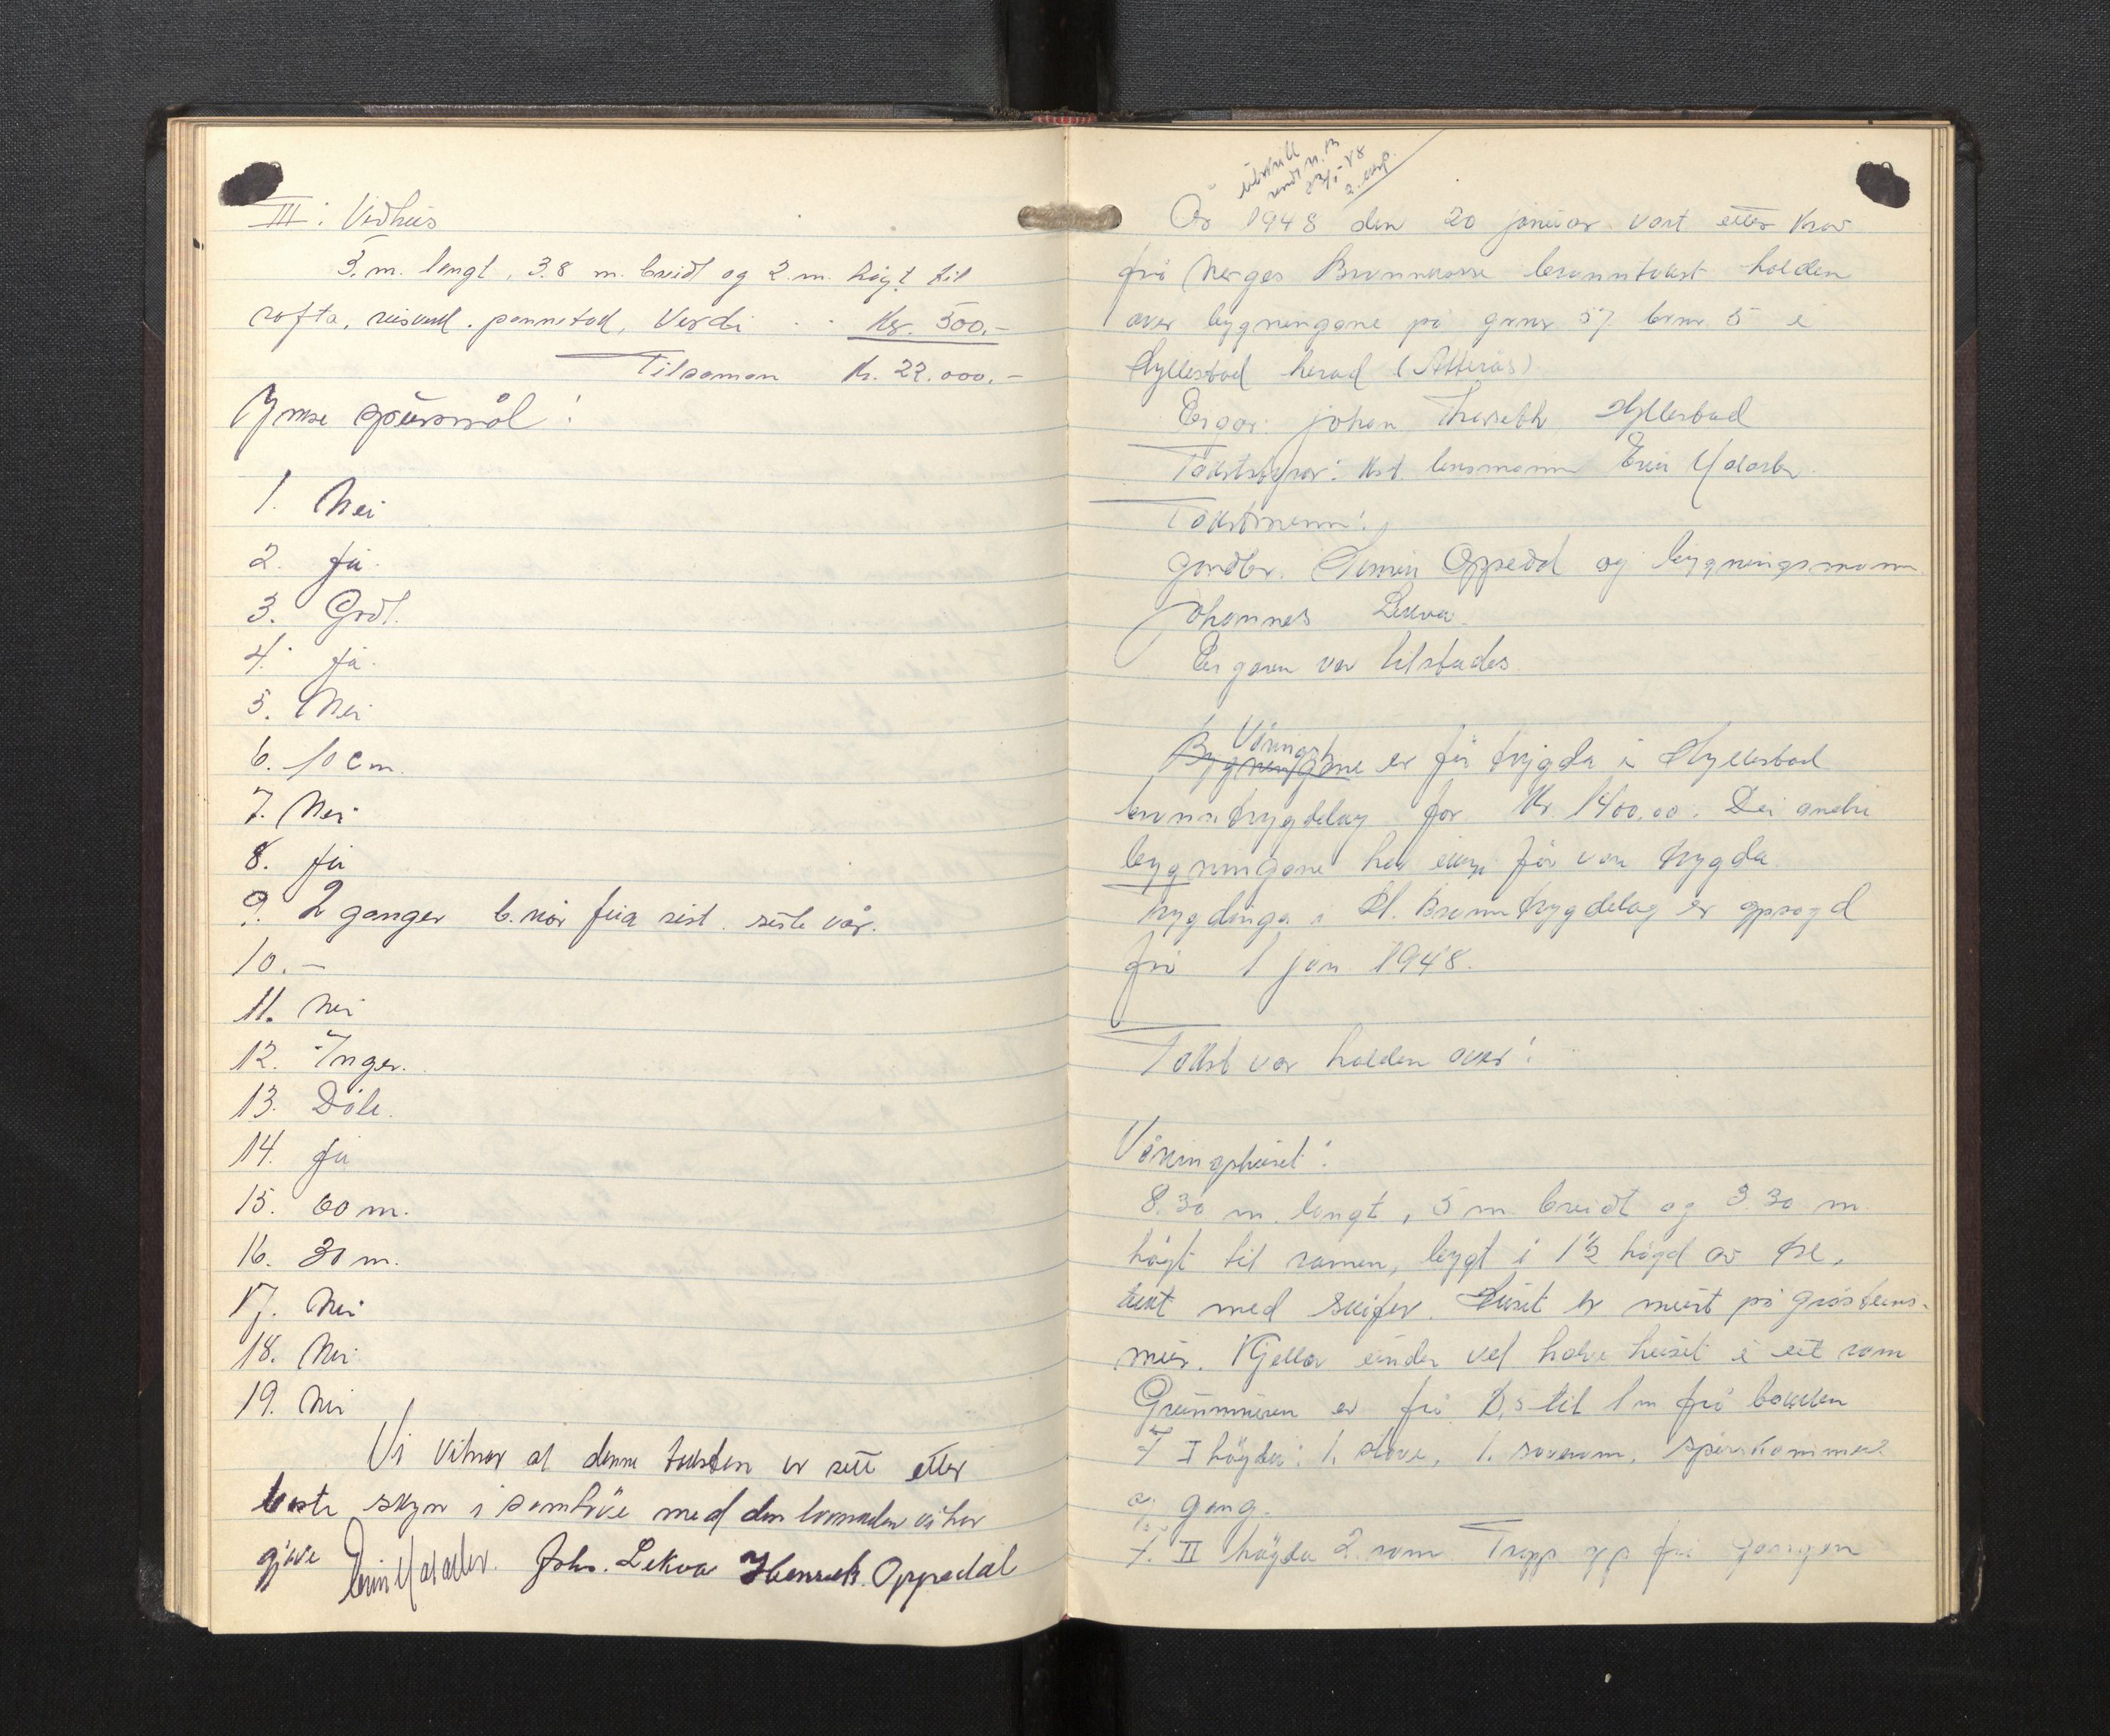 III: Vedhus
5. m. langt, 3.8 m. breidt og 2. m. høgt til
rofta, reisverk. pannetad, Verdi . . Kr. 500.-
Tilsaman Kr. 22.000.-
Ymse spursmål:
1. Nei
2. Ja.
3. Godt.
4. Ja.
5. Nei
6. 10 cm.
7. Nei
8. Ja
9. 2 ganger b. når feia sist. siste vår.
10. -
11. Nei
12. Inger.
13. Dåle.
14. Ja
15. 60 m.
16. 30 m.
17. Nei
18. Nei
19. Nei
Vi vitnar at denne taksten er sett etter
beste skyn i samhøve med den kunnskap vi har
gjeve Joh. Lekva Henrik Oppedal
utskrift
sendt N.B
23/1-48
2. eksp.
År 1948 den 20 januar vart etter krav
frå Norges Brannkasse branntakst halden
over bygningane på gnr 57 brnr. 5 i
Hyllestad herad (Atterås)
Eigar: Johan Hyllestad
Takststyrar: Kst. lensmann
Takstmenn:
gardbr. Oppedal og bygningsmann
Johannes Lekva.
Eigaren var tilstades.
Våningsh
Bygningane er før trygda i Hyllestad
branntrygdelag for Kr. 1400,00. Dei andre
bygningane har ikkje før vore trygda
Trygdinga i Hl. Branntrygdelag er oppsagd
frå 1 jan. 1948.
Takst var halden over:
Våningshuset:
8.30 m. langt, 5 m breidt og 3.30 m.
høgt til ramen, bygt i 1 1/2 høgd av tre,
tekt med skifer. Huset er murt på gråsteins-
mur. Kjellar under vel halve huset i eit rom
Grunnmuren er frå 0,5 til 1 m frå bakken
I I høgda: 1. stove, 1. soverom, spiskammer
og gang.
I. II høgda 2 rom Trapp opp frå gangen